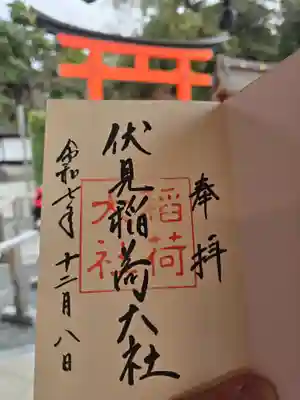 奉拝
伏見稲荷大社
稲荷
大社
令和七年 十二月八日